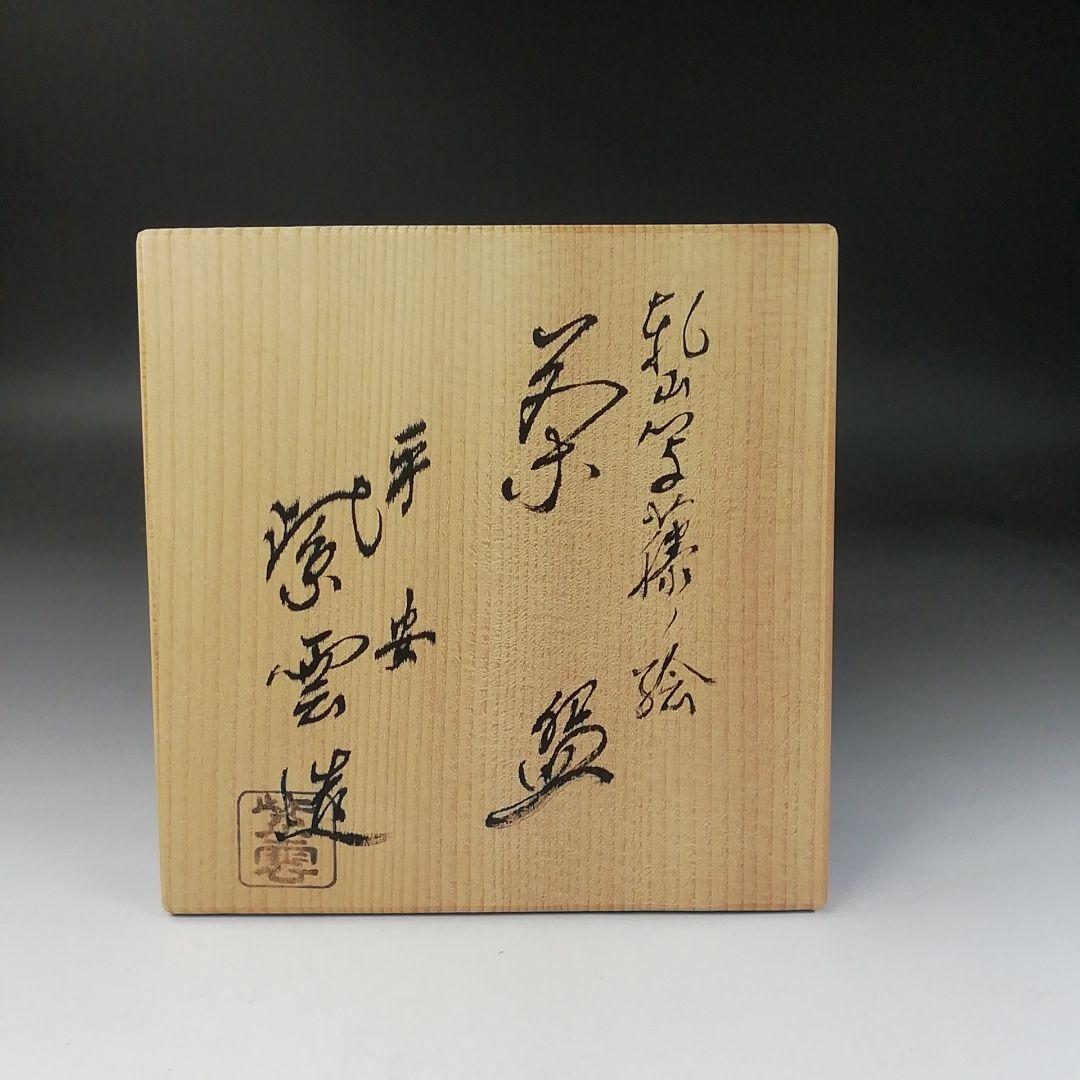 乾山写藤ノ絵
茶盌
平安
紫雲造
紫雲